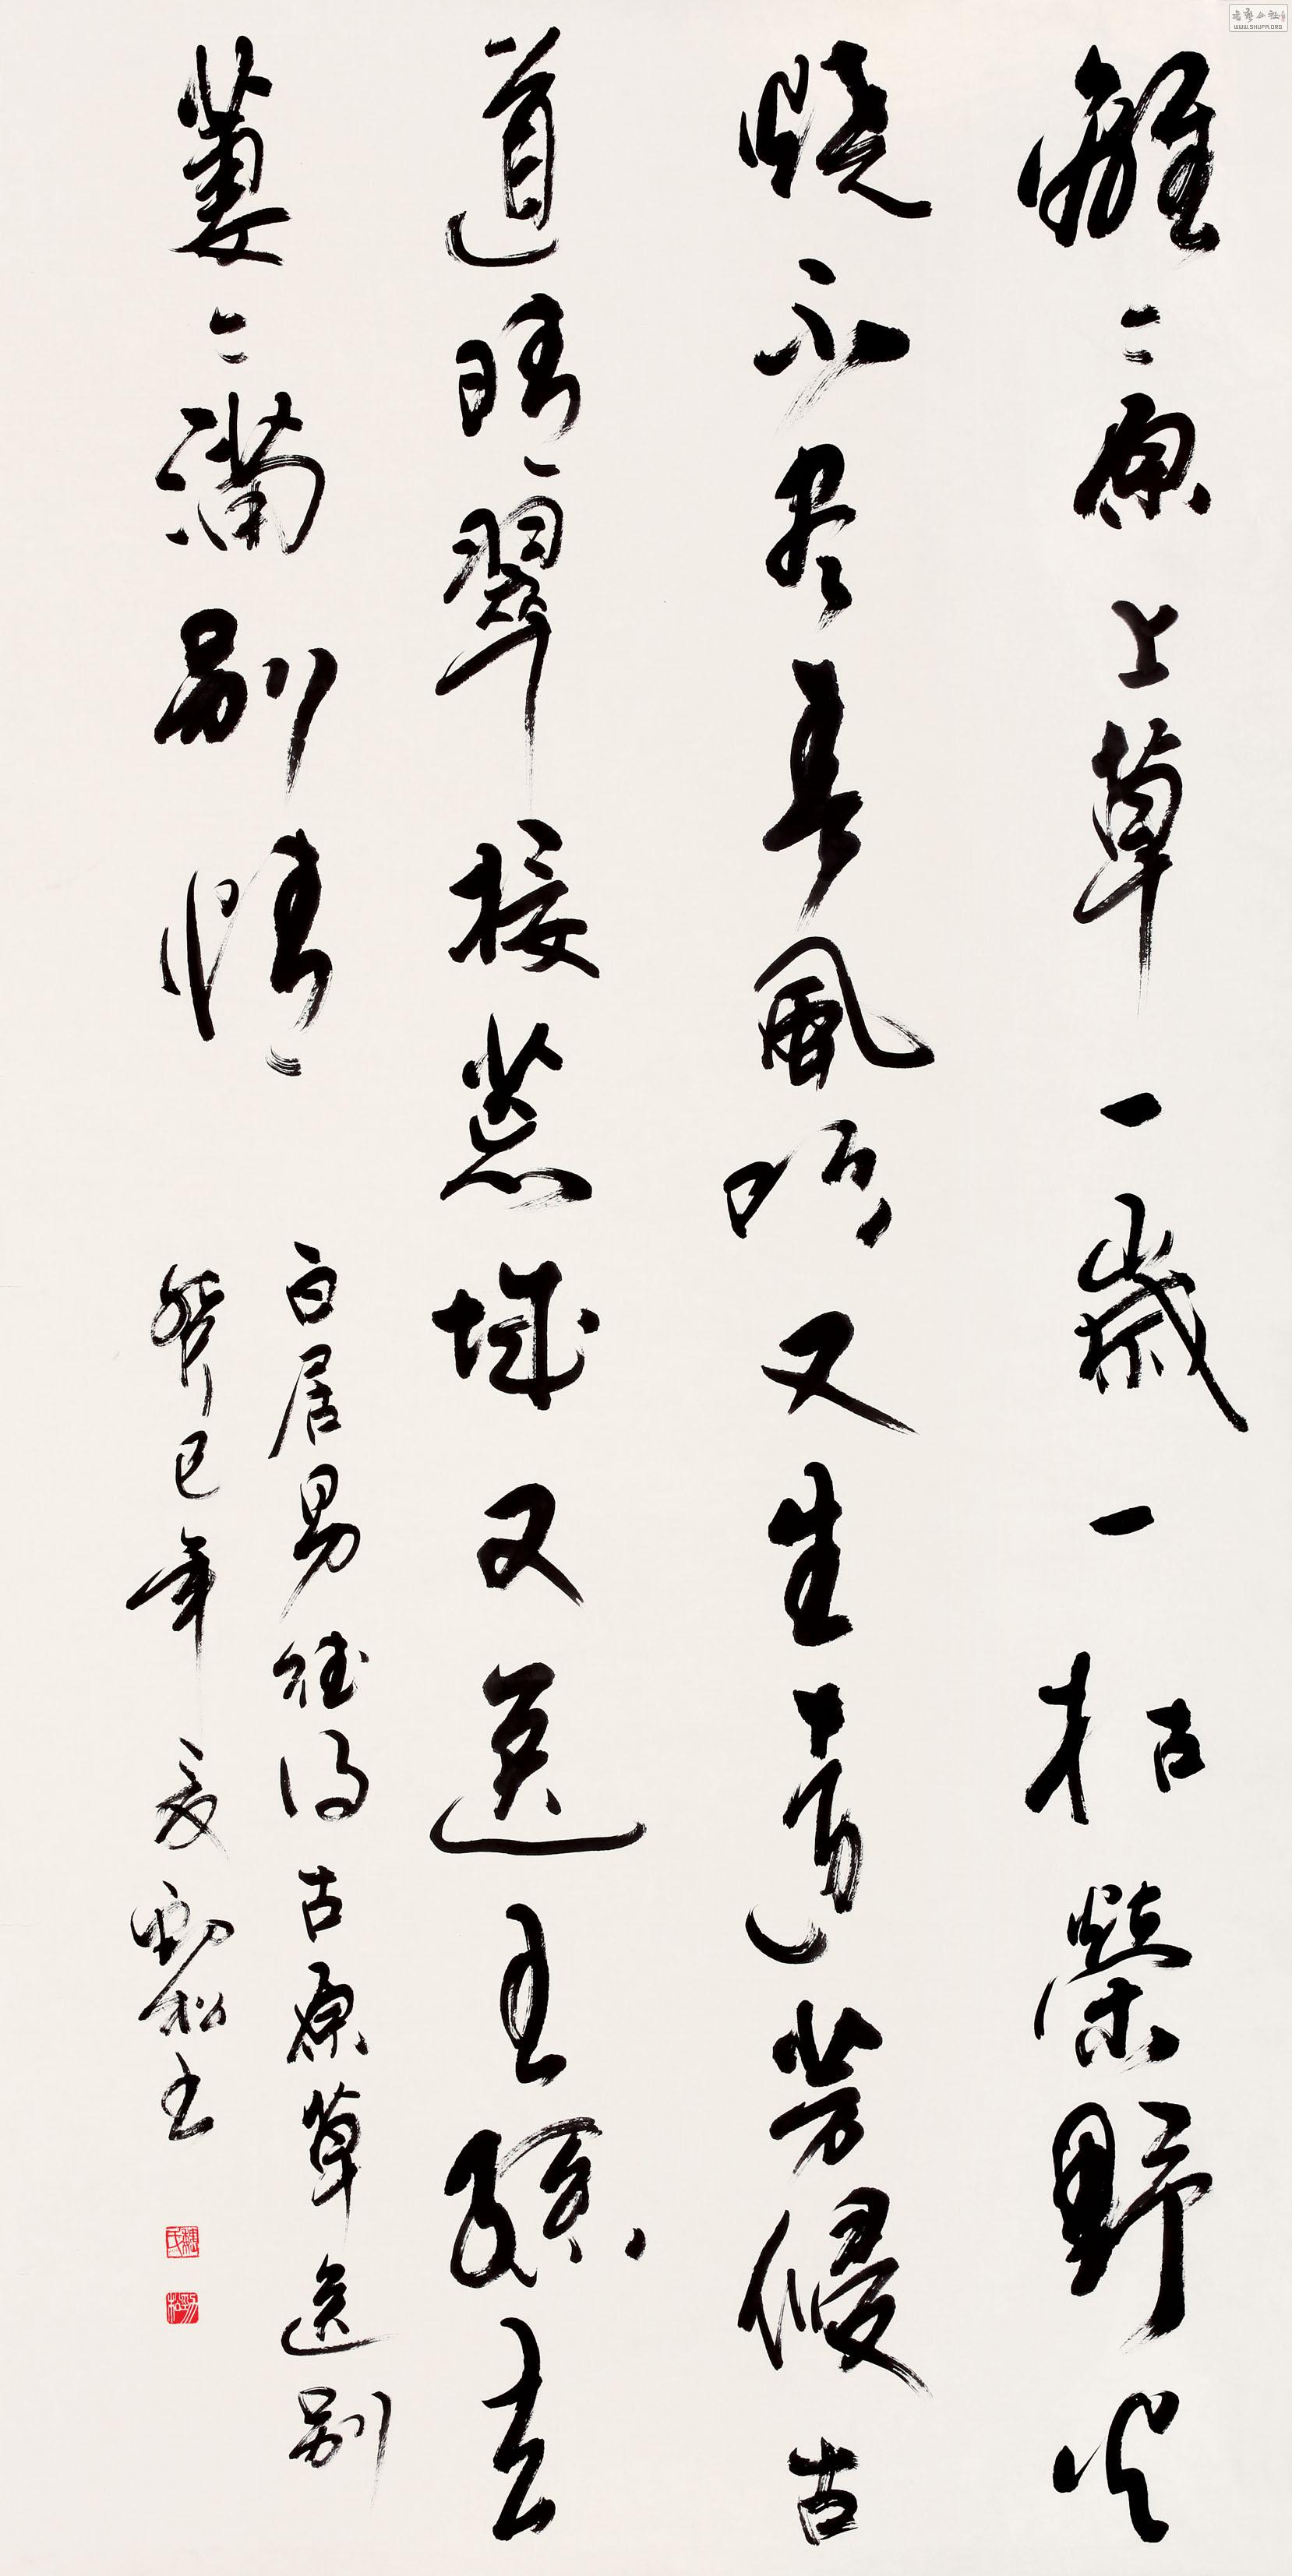 離〻原上草一歲一枯榮野火
燒不尽春風吹又生遠芳侵古
道晴翠接荒城又送王孫去
萋〻滿別情
白居易賦得古原草送別
癸巳年夏勁松書